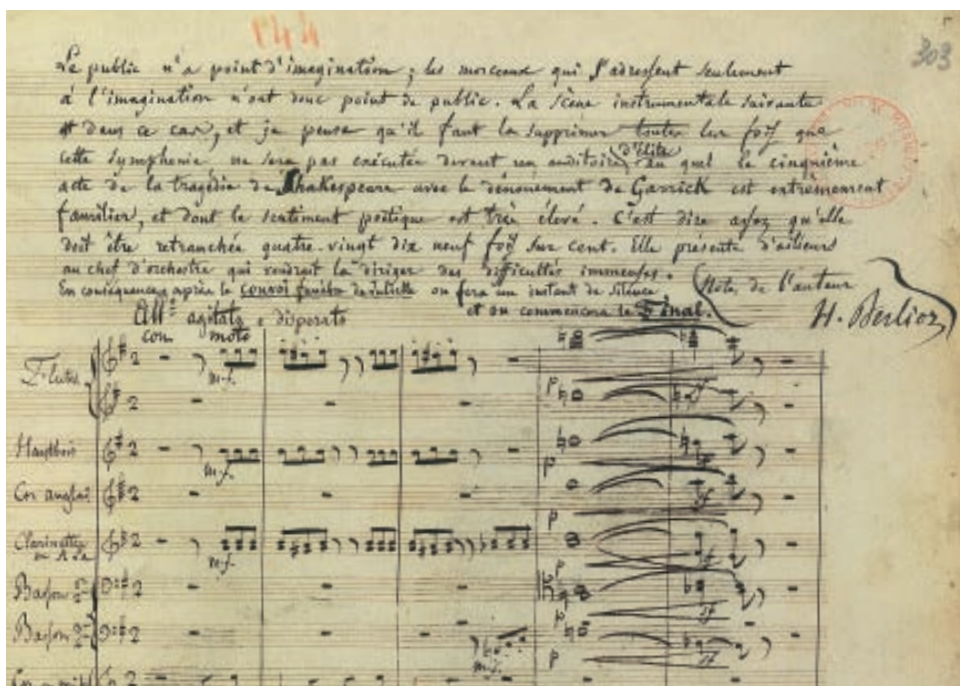 144
303
Le public n'a point d'imagination ; les morceaux qui s'adressent seulement
à l'imagination n'ont donc point de public. La scène instrumentale suivante
est dans ce cas, et je pense qu'il faut la supprimer toutes les fois que
cette symphonie ne sera pas exécutée devant un auditoire d'élite au quel le cinquième
acte de la tragédie de Shakespeare avec le dénouement de Garrick est extrêmement
familier, et dont le sentiment poëtique est très élevé. C'est dire assez qu'elle
doit être retranchée quatre-vingt dix neuf fois sur cent. Elle présente d'ailleurs
au chef d'orchestre qui voudrait la diriger des difficultés immenses.
En conséquence après le convoi funèbre de Juliette on fera un instant de silence
et on commencera le Final.
(Note de l'auteur
H. Berlioz)
All° agitato e disperato
con moto
Flutes
m.f.
p
Hautbois
m.f.
p
Cor anglais
p
sf
Clarinettes
en La
m.f.
p
sf
Basson 1er
p
sf
Basson 2d
m.f.
p
sf